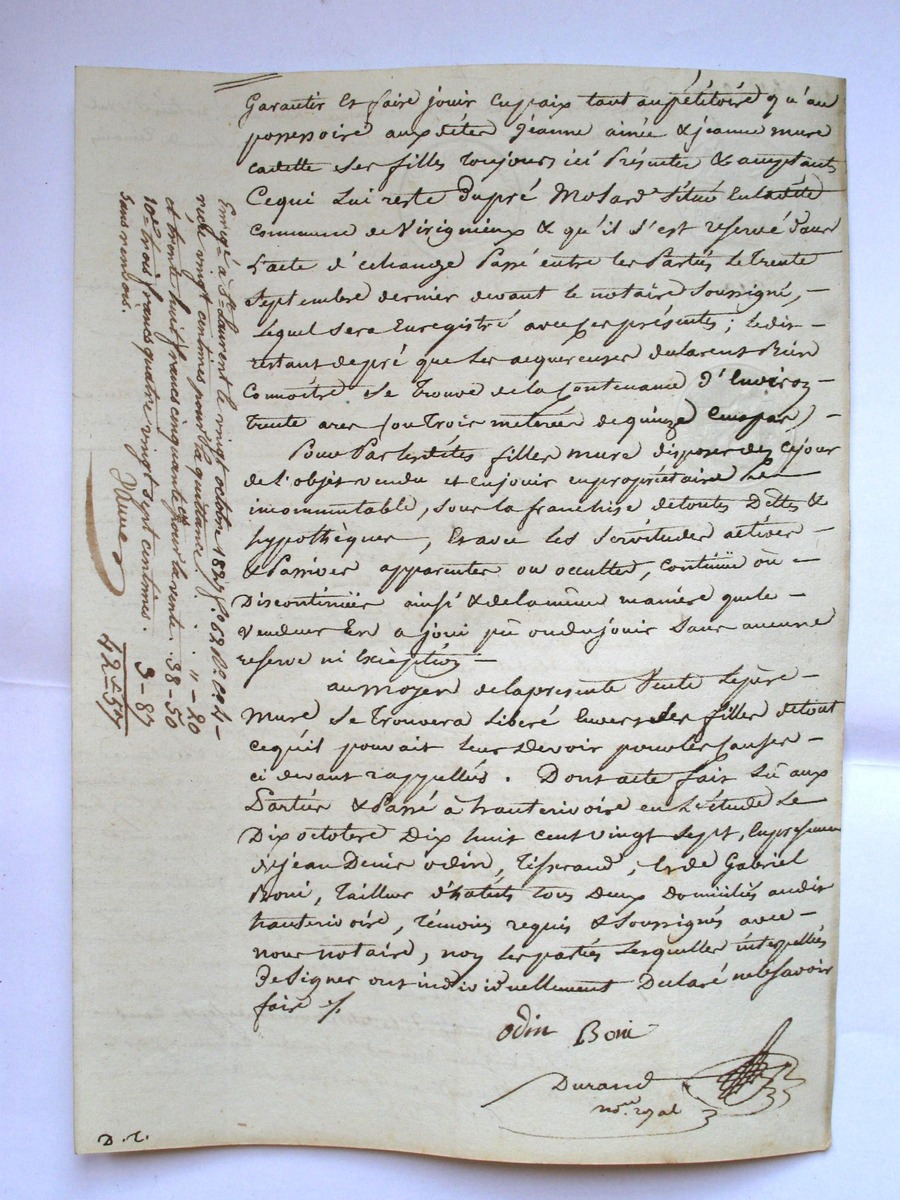 Garantir et faire jouir en paix tant au pétitoire qu'au
possessoire aux dites jeanne ainée & jeanne mure
cadette ses filles toujours ici Présentes & acceptants
Ce qui Lui reste du pré Mosard Situé en la dite
commune de Virignieux & qu'il s'est reservé dans
L'acte d'échange Passé entre les Parties Le trente
septembre dernier devant le notaire soussigné, –
Lequel sera Enregistré avec ces présentes ; le dit –
restant de pré que les acquereuses declarent Bien
Connoitre se trouve de la Contenance d'Environ –
trente ares (ou trois meterées de quinze au par) –
Pour Par lesdites filles mure disposer dez ce jour
de l'objet vendu et en jouir en propriétaire
incommutable, sous la franchise de toutes Dettes &
hypothèques, Et avec les servitudes actives –
& Passives apparentes ou occultes, continüe ou –
Discontinües ainsi & de la même manière que le –
Vendeur En a joui pü ou du jouir sans aucune
reserve ni Exception –
au moyen de la présente Vente le père –
Mure se trouvera libéré Envers ses filles de tout
ce qu'il pouvait leur devoir pour les causes –
ci devant rappellés. Dont acte fait Lu aux
Parties & Passé à hauterivoire en L'étude Le
Dix octobre Dix huit cent vingt sept, En présence
de jean Denis odin, tisserand, et de Gabriel
Boni, tailleur d'habits tous Deux Domiciliés audit
hauterivoire, témoins requis & soussignés avec –
nous notaire, non les parties Lesquelles interpellés
De signer ont individuellement Declaré ne le savoir
faire ./.
odin Boni
Durand
no.re royal
Enreg.é à S.t Laurent le vingt octobre 1827 f.o 62 V.o C. 4 –
reçu vingt centimes pour la quittance . . . " – 20
et trente huit francs cinquante c.es pour la vente . 38 – 50
10.e trois francs quatre vingt sept centimes . 3 – 87
Sans renvois.
42 – 57
D. t.